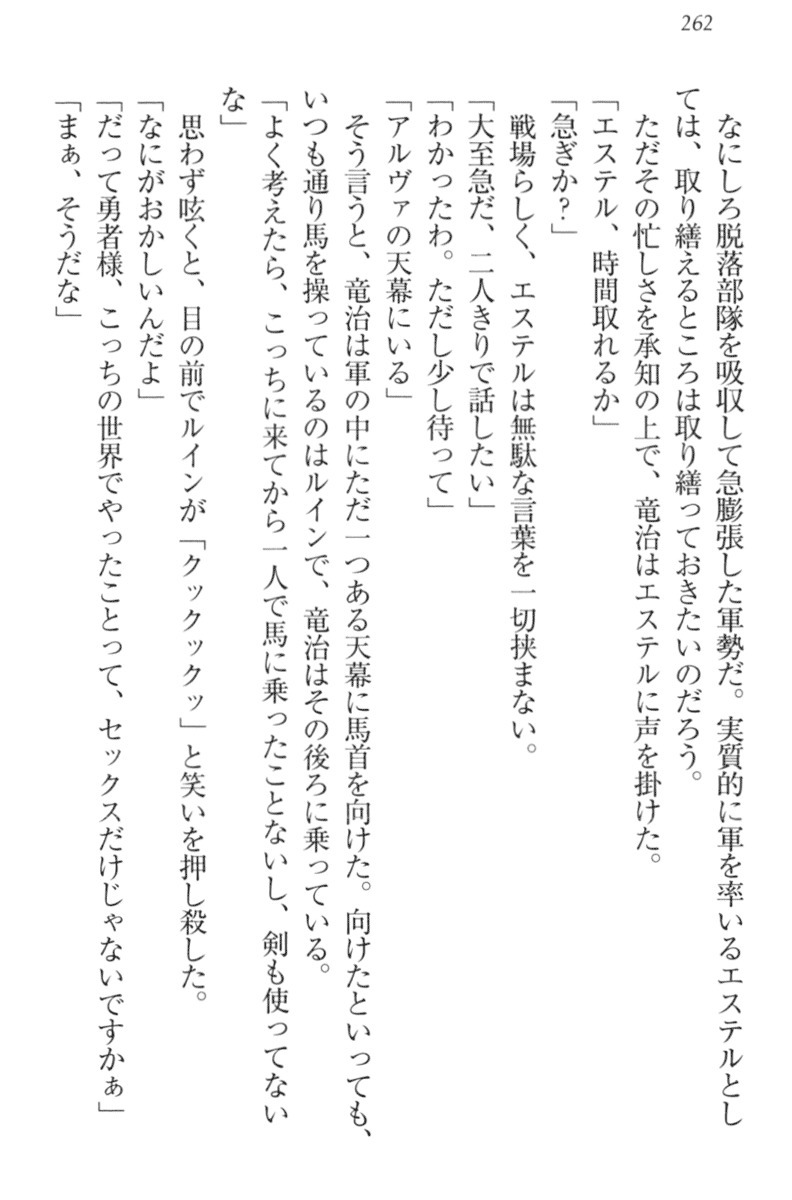 262
なにしろ脱落部隊を吸収して急膨張した軍勢だ。実質的に軍を率いるエステルとし
ては、取り繕えるところは取り繕っておきたいのだろう。
ただその忙しさを承知の上で、竜治はエステルに声を掛けた。
「エステル、時間取れるか」
「急ぎか?」
戦場らしく、エステルは無駄な言葉を一切挟まない。
「大至急だ、二人きりで話したい」
「わかったわ。ただし少し待って」
「アルヴァの天幕にいる」
そう言うと、竜治は軍の中にただ一つある天幕に馬首を向けた。向けたといっても、
いつも通り馬を操っているのはルインで、竜治はその後ろに乗っている。
「よく考えたら、こっちに来てから一人で馬に乗ったことないし、剣も使ってない
な」
思わず呟くと、目の前でルインが「クックックッ」と笑いを押し殺した。
「なにがおかしいんだよ」
「だって勇者様、こっちの世界でやったことって、セックスだけじゃないですかぁ」
「まぁ、そうだな」